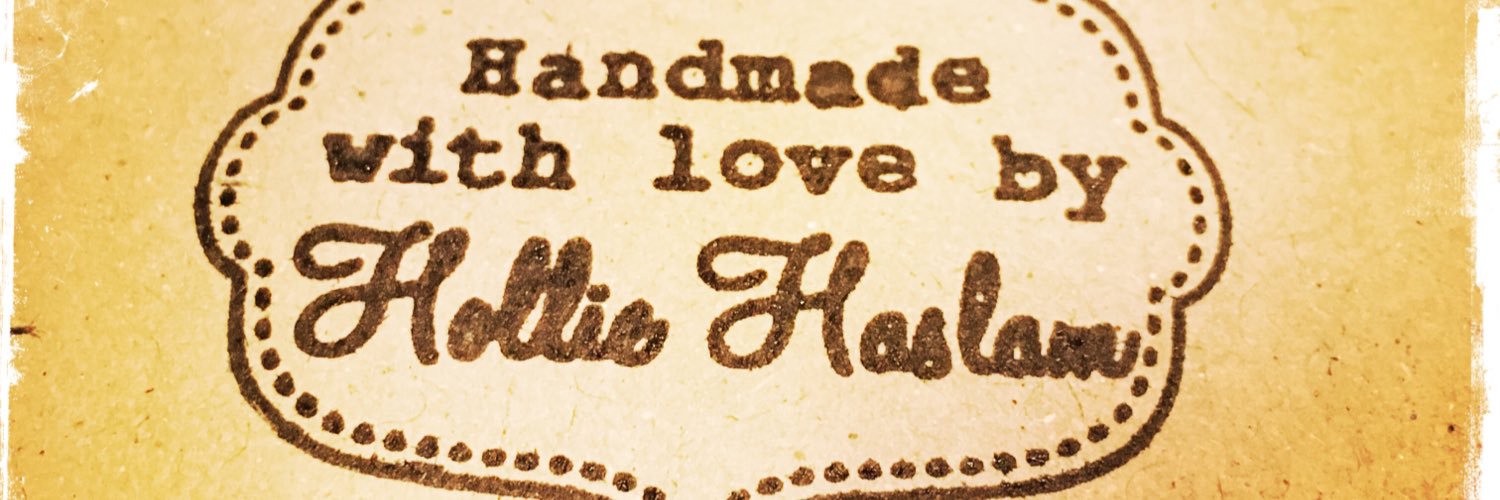 Handmade
with love by
Hollie Haslam